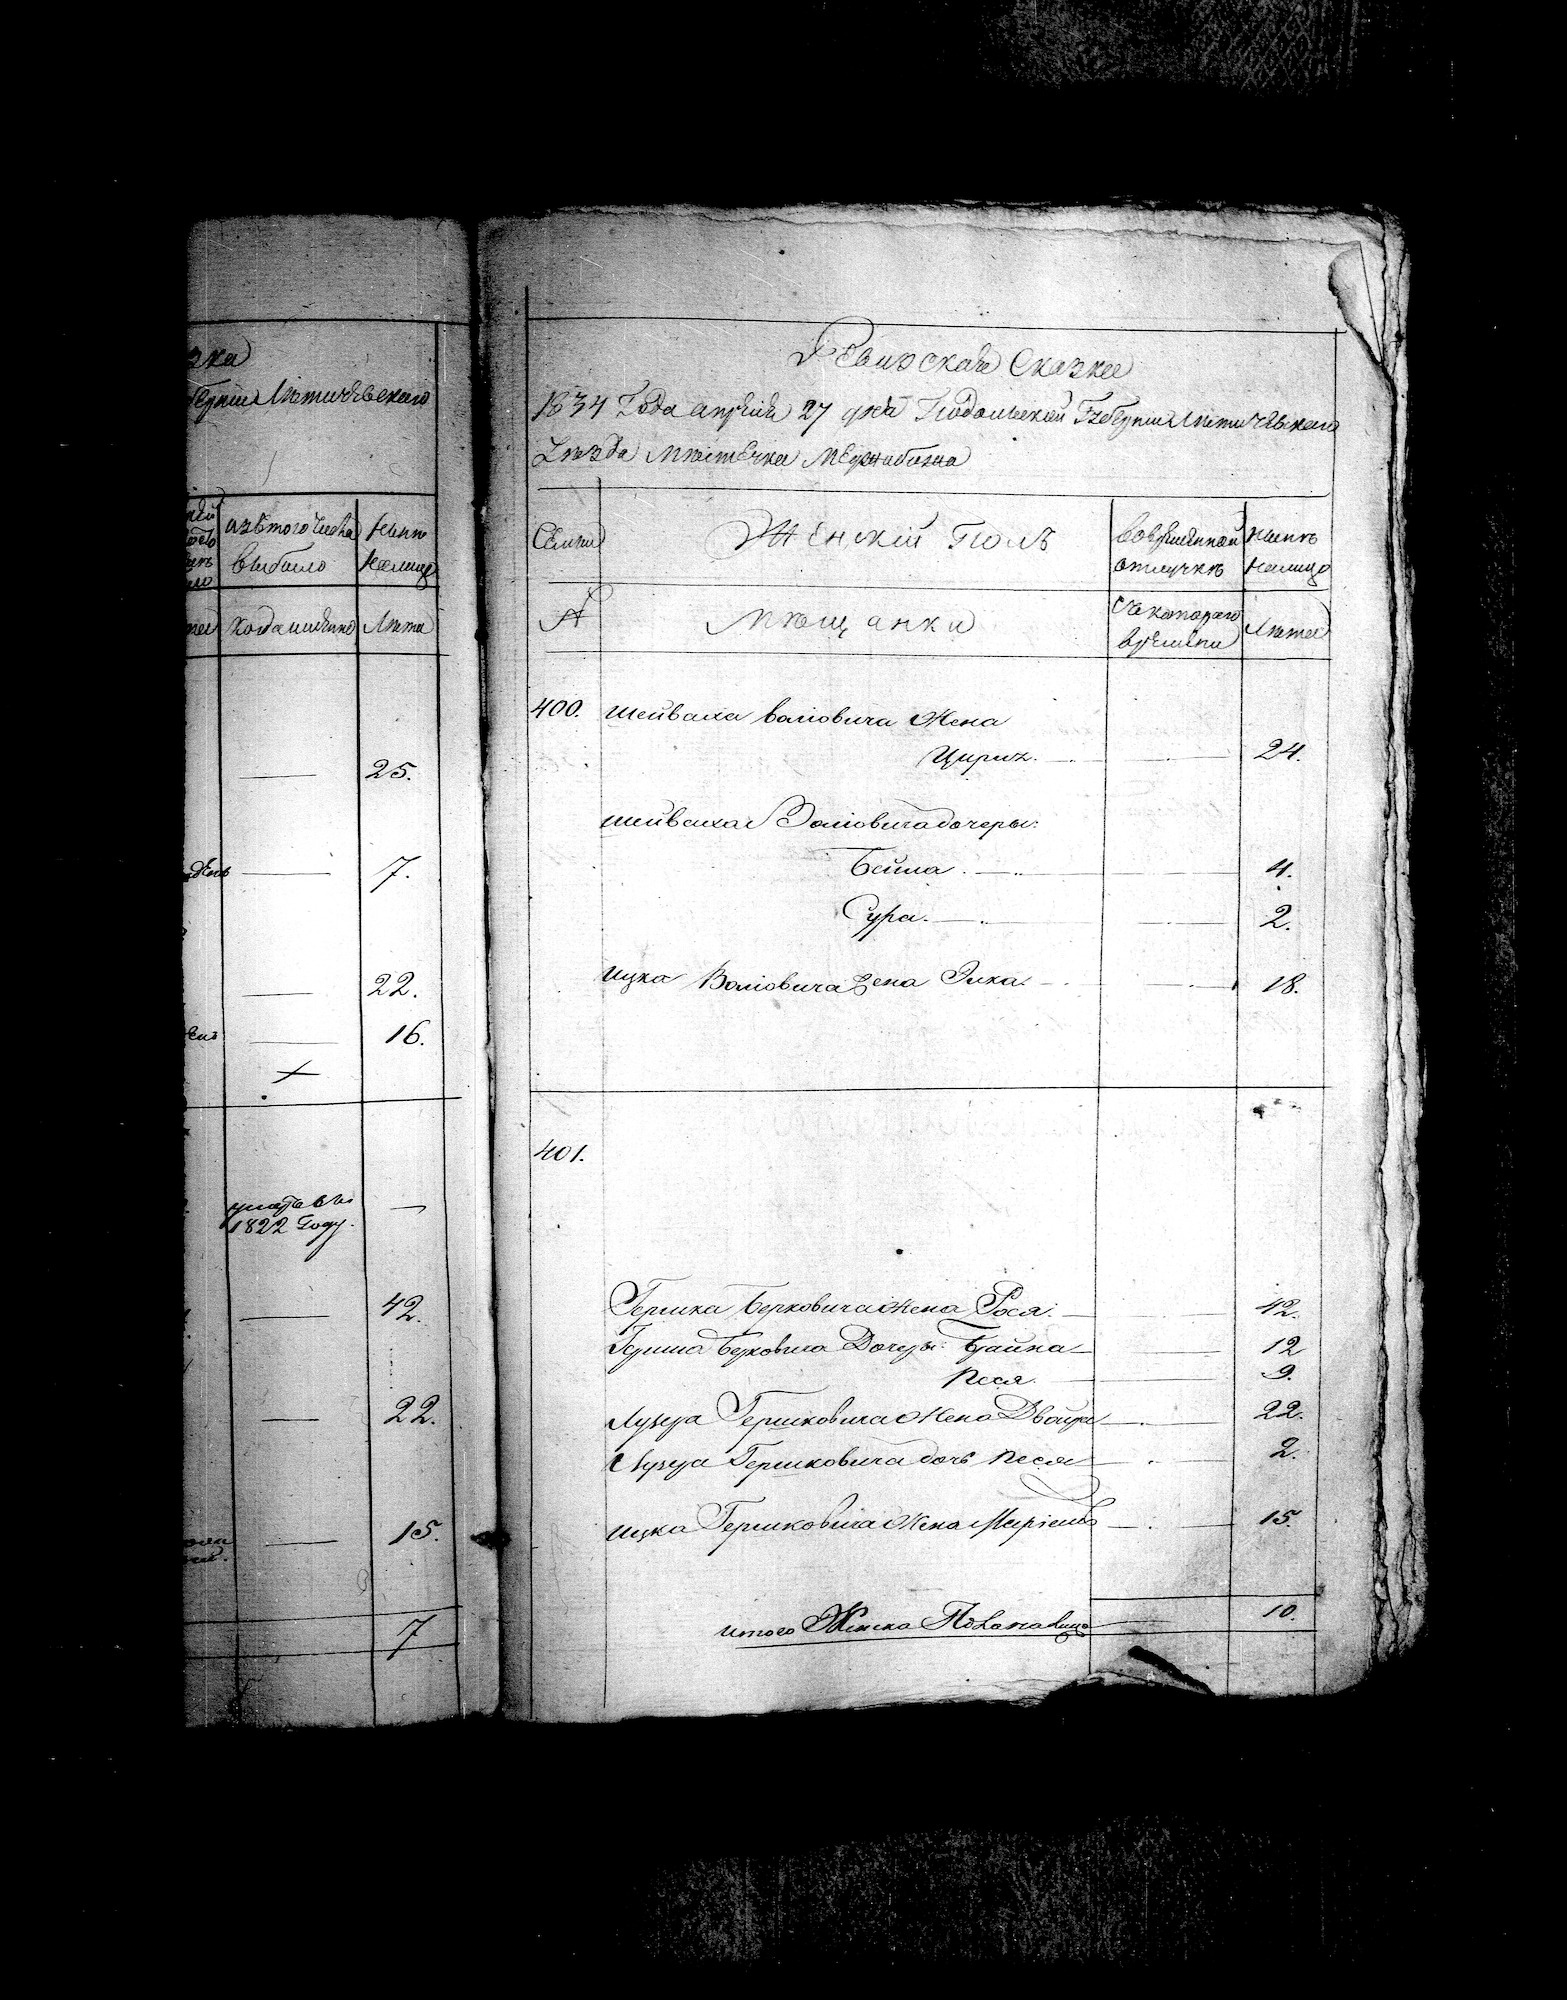 зка
Губерніи Лѣтичевскаго
изъ того числа
выбыло
Нынѣ
налицо
когда имянно
Лѣта
25.
7.
22.
16.
умеръ въ
1822 Году.
42.
22.
15.
7
Ревизская Сказка
1834 Года апреля 27 дня Подольской Губерніи Лѣтичевскаго
Уѣзда Мѣстечка Меджибожа
Семьи
Женскій Полъ
Вовременной
отлучкѣ
Нынѣ
налицо
№
Мѣщанки
Съ котораго
времени
Лѣта
400. Шейваха Волковича Жена
Цирля. 24.
Шейваха Волковича дочеры:
Бейла. 4.
Сура. 2.
Ицка Волковича жена Элка. 18.
401.
Гершка Берковича Жена Рося. 42.
Герша Берковича Дочеры: Брайна 12
Песя. 9.
Лузера Гершковича Жена Двойра 22.
Лузера Гершковича дочь Песя 2.
Ицка Гершковича Жена Маріемъ 15.
итого Женска Пола налицо 10.